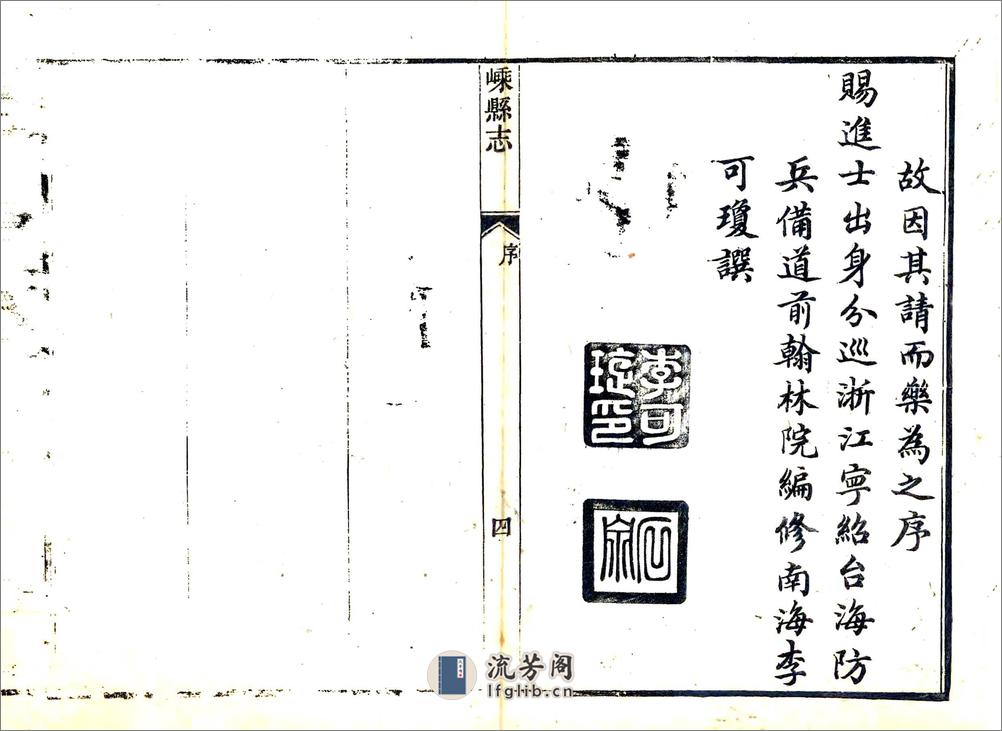 故因其請而樂為之序
賜進士出身分巡浙江寧紹台海防
兵備道前翰林院編修南海李
可瓊譔
李可琁印
石泉
嵊縣志
序
四
流芳阁
lfglib.cn